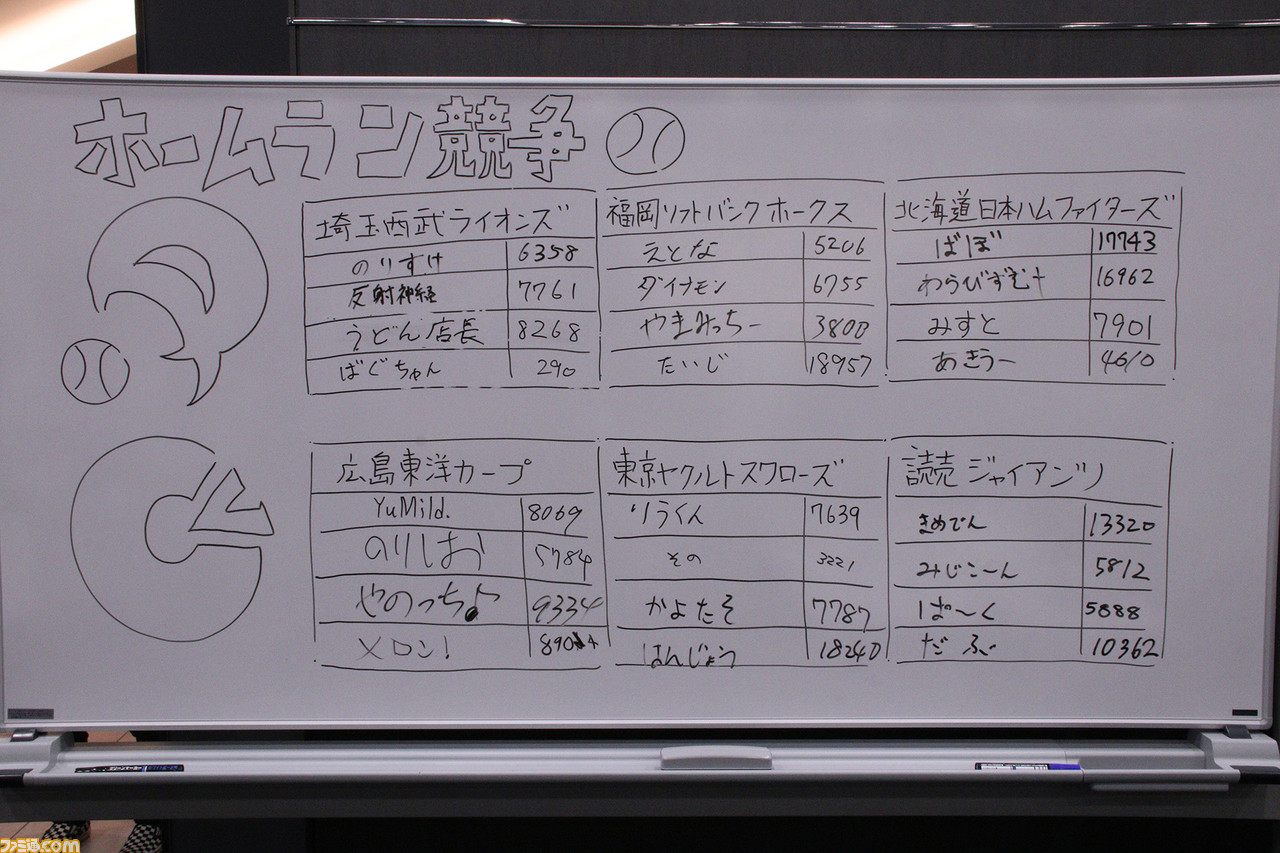 ホームラン競争
埼玉西武ライオンズ
のりすけ 6358
反射神経 7761
うどん店長 8268
ばぐちゃん 290
福岡ソフトバンクホークス
えとな 5206
ダイナモン 6755
やまみっちー 3800
たいじ 18957
北海道日本ハムファイターズ
ばぼ 17743
わらびずむ 16962
みすと 7901
あきうー 4610
広島東洋カープ
YuMild. 8069
のりしお 5784
やのっち♪ 9334
メロン! 8904
東京ヤクルトスワローズ
りうくん 7639
その 3221
かよたそ 7787
はんじょう 18240
読売ジャイアンツ
きめでん 13320
みじこーん 5812
ぱ〜く 5888
だふぶ 10362
ファミ通.com